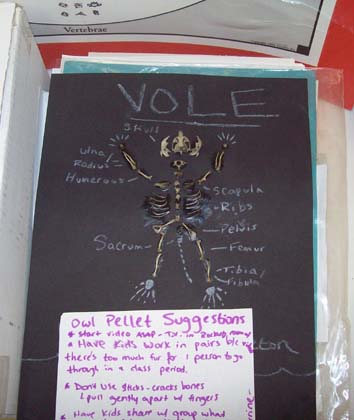 Vertebrae
VOLE
Skull
Ulna
Radius
Humerous
Scapula
Ribs
Pelvis
Sacrum
Femur
Tibia/
Fibula
Owl Pellet Suggestions
* Start video ASAP - T.V. in
* Have kids work in pairs b/c
there's too much fur for 1 person to go
through in a class period.
* Don't use sticks - cracks bones
pull gently apart w/ fingers
* Have kids share w/ group what